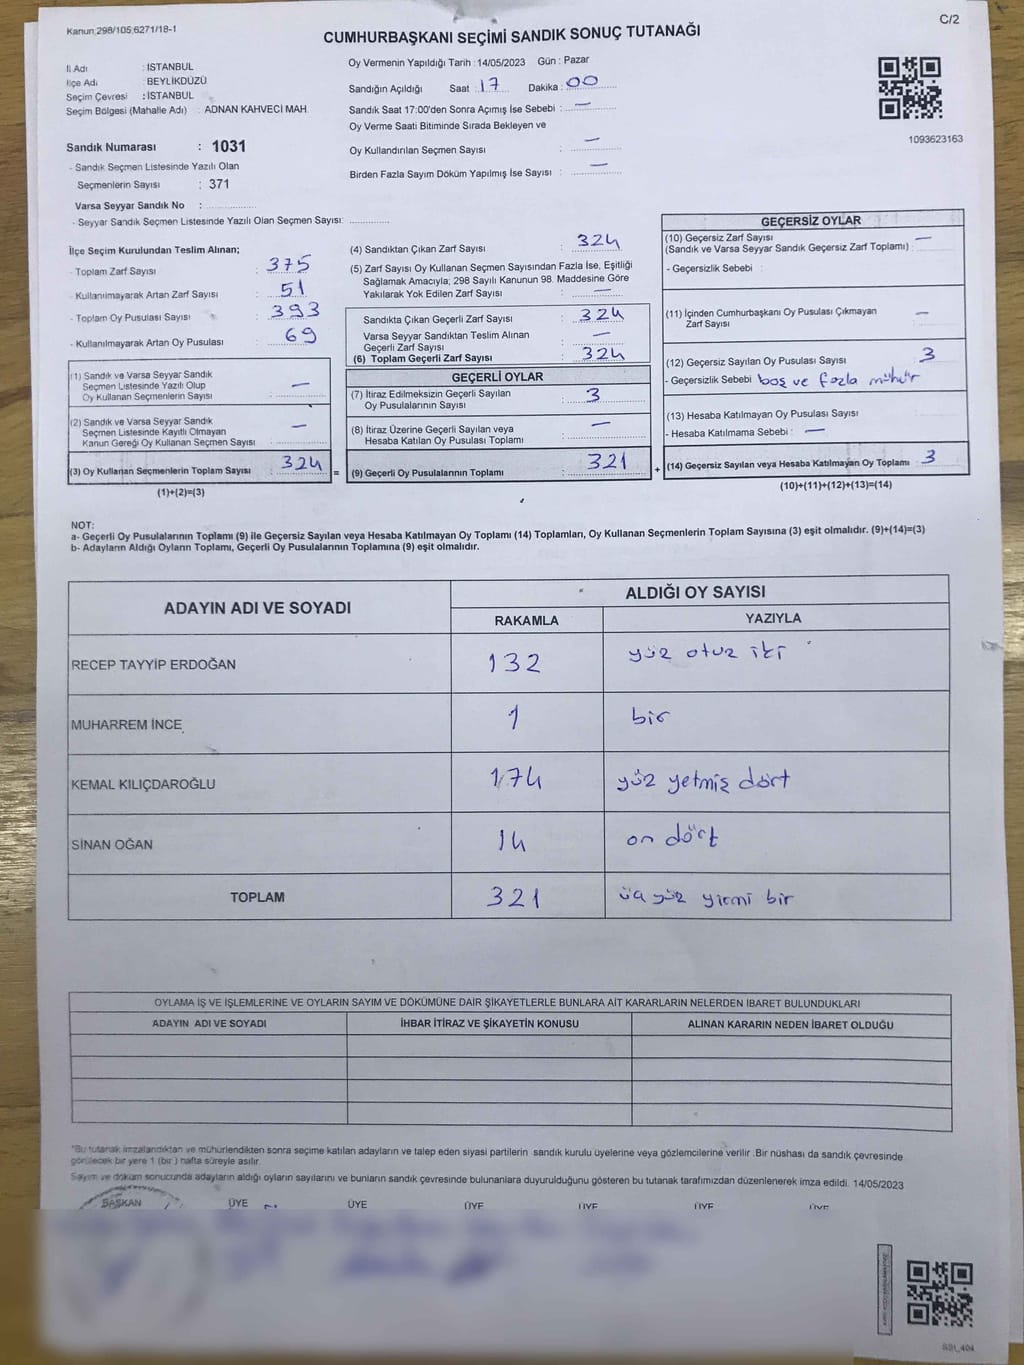 Kanun;298/105;6271/18-1
C/2
CUMHURBAŞKANI SEÇİMİ SANDIK SONUÇ TUTANAĞI
İl Adı : İSTANBUL
İlçe Adı : BEYLİKDÜZÜ
Seçim Çevresi : İSTANBUL
Seçim Bölgesi (Mahalle Adı) : ADNAN KAHVECİ MAH.
Oy Vermenin Yapıldığı Tarih : 14/05/2023 Gün : Pazar
Sandığın Açıldığı Saat : 17 Dakika : 00
Sandık Saat 17:00'den Sonra Açımış İse Sebebi : —
Oy Verme Saati Bitiminde Sırada Bekleyen ve
Oy Kullandırılan Seçmen Sayısı : —
Birden Fazla Sayım Döküm Yapılmış İse Sayısı : —
1093623163
Sandık Numarası : 1031
- Sandık Seçmen Listesinde Yazılı Olan
Seçmenlerin Sayısı : 371
Varsa Seyyar Sandık No :
- Seyyar Sandık Seçmen Listesinde Yazılı Olan Seçmen Sayısı:
İlçe Seçim Kurulundan Teslim Alınan;
- Toplam Zarf Sayısı : 375
- Kullanılmayarak Artan Zarf Sayısı : 51
- Toplam Oy Pusulası Sayısı : 393
- Kullanılmayarak Artan Oy Pusulası : 69
(1) Sandık ve Varsa Seyyar Sandık
Seçmen Listesinde Yazılı Olup
Oy Kullanan Seçmenlerin Sayısı : —
(2) Sandık ve Varsa Seyyar Sandık
Seçmen Listesinde Kayıtlı Olmayan
Kanun Gereği Oy Kullanan Seçmen Sayısı : —
(3) Oy Kullanan Seçmenlerin Toplam Sayısı : 324 =
(1)+(2)=(3)
(4) Sandıktan Çıkan Zarf Sayısı : 324
(5) Zarf Sayısı Oy Kullanan Seçmen Sayısından Fazla İse, Eşitliği
Sağlamak Amacıyla; 298 Sayılı Kanunun 98. Maddesine Göre
Yakılarak Yok Edilen Zarf Sayısı : —
Sandıkta Çıkan Geçerli Zarf Sayısı : 324
Varsa Seyyar Sandıktan Teslim Alınan
Geçerli Zarf Sayısı : —
(6) Toplam Geçerli Zarf Sayısı : 324
GEÇERLİ OYLAR
(7) İtiraz Edilmeksizin Geçerli Sayılan
Oy Pusulalarının Sayısı : 3
(8) İtiraz Üzerine Geçerli Sayılan veya
Hesaba Katılan Oy Pusulası Toplamı : —
(9) Geçerli Oy Pusulalarının Toplamı : 321 +
GEÇERSİZ OYLAR
(10) Geçersiz Zarf Sayısı
(Sandık ve Varsa Seyyar Sandık Geçersiz Zarf Toplamı) : —
- Geçersizlik Sebebi :
(11) İçinden Cumhurbaşkanı Oy Pusulası Çıkmayan
Zarf Sayısı : —
(12) Geçersiz Sayılan Oy Pusulası Sayısı : 3
- Geçersizlik Sebebi : boş ve fazla mühür
(13) Hesaba Katılmayan Oy Pusulası Sayısı
- Hesaba Katılmama Sebebi : —
(14) Geçersiz Sayılan veya Hesaba Katılmayan Oy Toplamı : 3
(10)+(11)+(12)+(13)=(14)
NOT:
a- Geçerli Oy Pusulalarının Toplamı (9) ile Geçersiz Sayılan veya Hesaba Katılmayan Oy Toplamı (14) Toplamları, Oy Kullanan Seçmenlerin Toplam Sayısına (3) eşit olmalıdır. (9)+(14)=(3)
b- Adayların Aldığı Oyların Toplamı, Geçerli Oy Pusulalarının Toplamına (9) eşit olmalıdır.
ADAYIN ADI VE SOYADI
ALDIĞI OY SAYISI
RAKAMLA YAZIYLA
RECEP TAYYİP ERDOĞAN 132 yüz otuz iki
MUHARREM İNCE 1 bir
KEMAL KILIÇDAROĞLU 174 yüz yetmiş dört
SİNAN OĞAN 14 on dört
TOPLAM 321 üç yüz yirmi bir
OYLAMA İŞ VE İŞLEMLERİNE VE OYLARIN SAYIM VE DÖKÜMÜNE DAİR ŞİKAYETLERLE BUNLARA AİT KARARLARIN NELERDEN İBARET BULUNDUKLARI
ADAYIN ADI VE SOYADI İHBAR İTİRAZ VE ŞİKAYETİN KONUSU ALINAN KARARIN NEDEN İBARET OLDUĞU
*Bu tutanak imzalandıktan ve mühürlendikten sonra seçime katılan adayların ve talep eden siyasi partilerin sandık kurulu üyelerine veya gözlemcilerine verilir .Bir nüshası da sandık çevresinde
görülecek bir yere 1 (bir ) hafta süreyle asılır.
Sayım ve döküm sonucunda adayların aldığı oyların sayılarını ve bunların sandık çevresinde bulunanlara duyurulduğunu gösteren bu tutanak tarafımızdan düzenlenerek imza edildi. 14/05/2023
BAŞKAN ÜYE ÜYE ÜYE ÜYE ÜYE ÜYE